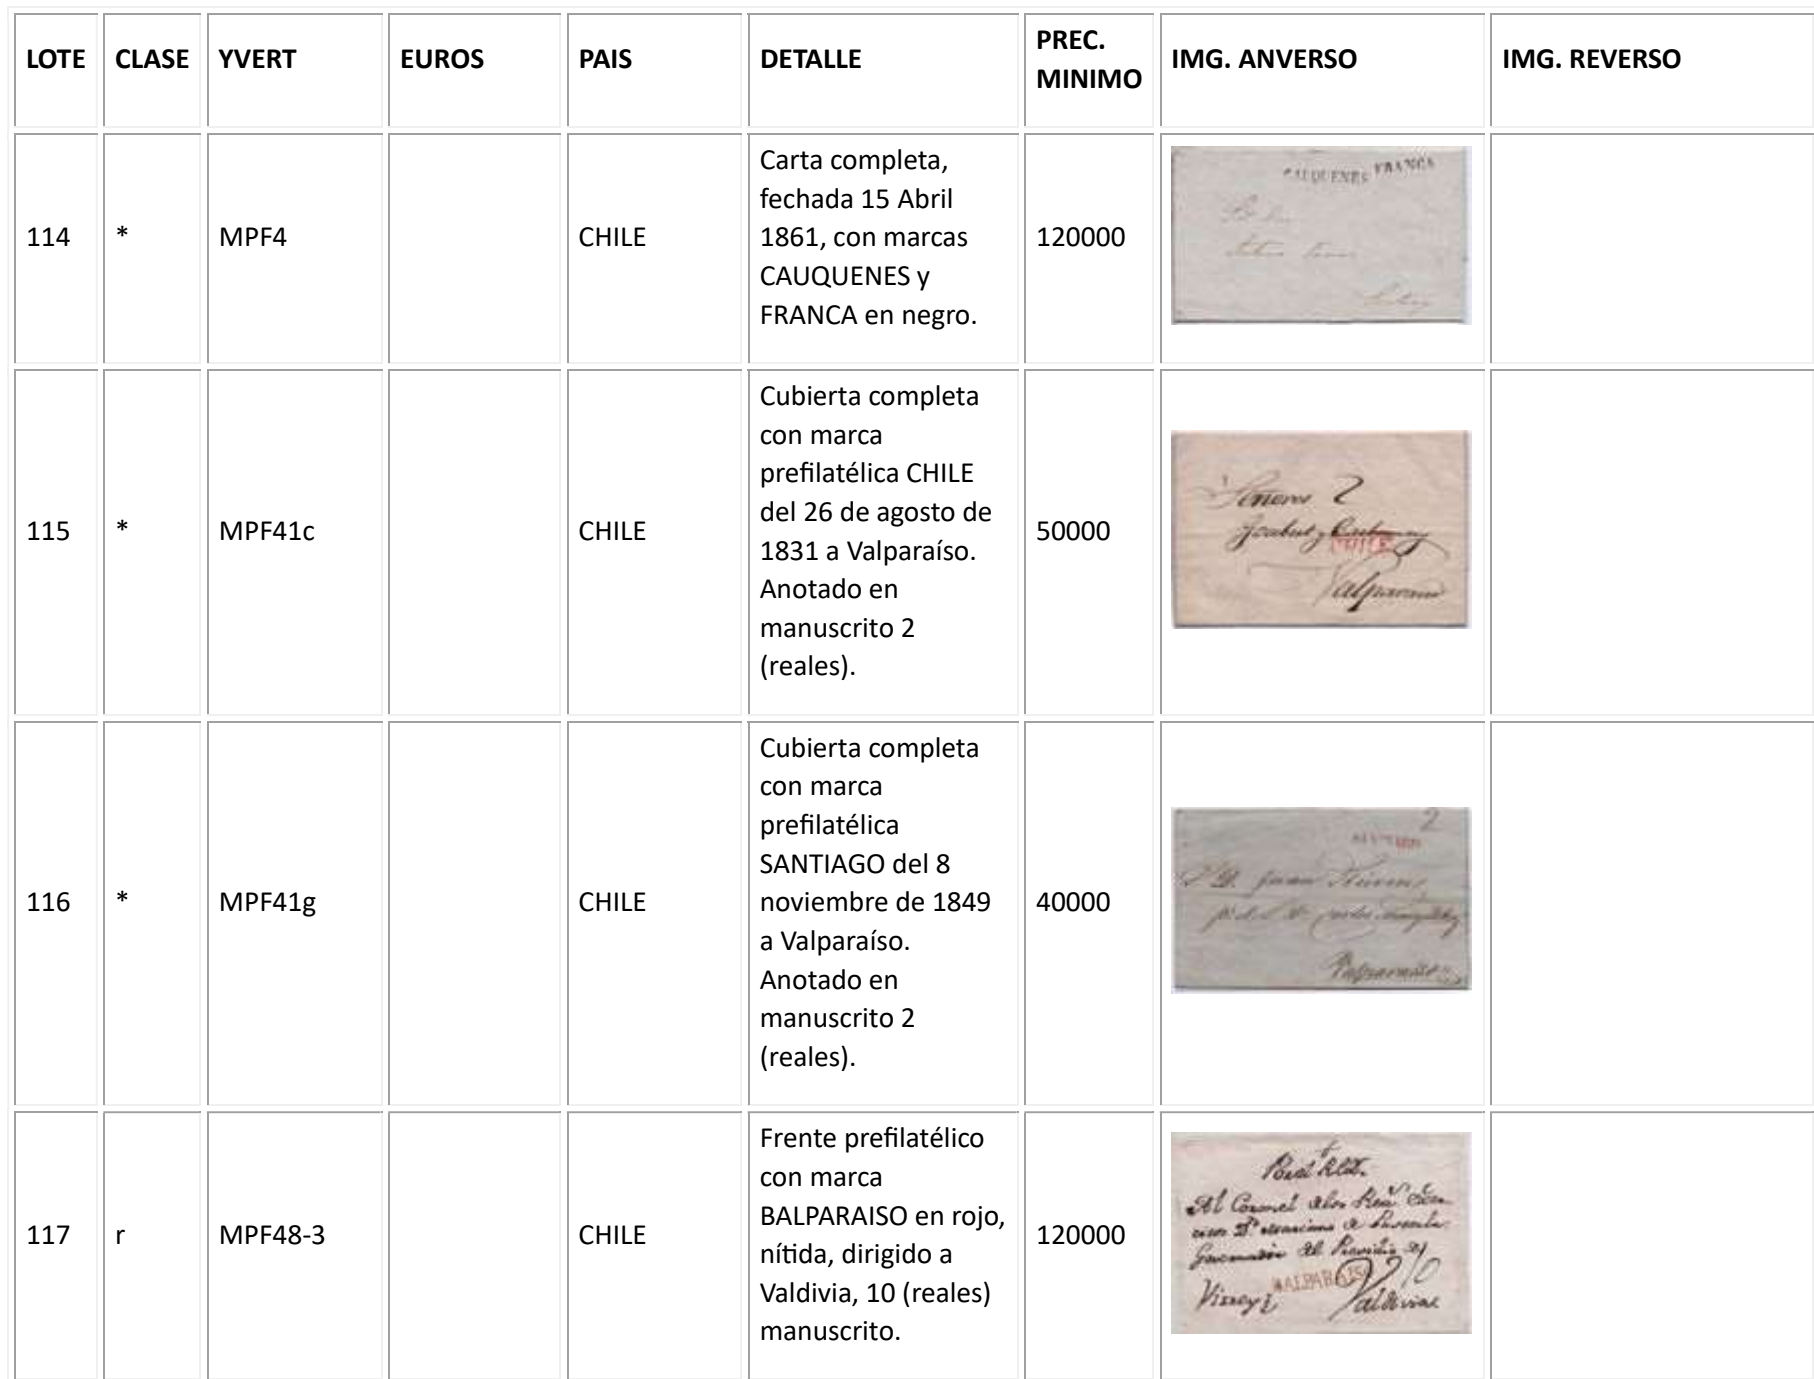 LOTE CLASE YVERT EUROS PAIS DETALLE PREC. MINIMO IMG. ANVERSO IMG. REVERSO
114 * MPF4 CHILE
Carta completa,
fechada 15 Abril
1861, con marcas
CAUQUENES y
FRANCA en negro.
120000
CAUQUENES FRANCA
115 * MPF41c CHILE
Cubierta completa
con marca
prefilatélica CHILE
del 26 de agosto de
1831 a Valparaíso.
Anotado en
manuscrito 2
(reales).
50000
Señores 2
CHILE
Valparaiso
116 * MPF41g CHILE
Cubierta completa
con marca
prefilatélica
SANTIAGO del 8
noviembre de 1849
a Valparaíso.
Anotado en
manuscrito 2
(reales).
40000
2
SANTIAGO
Juan
Valparaiso
117 r MPF48-3 CHILE
Frente prefilatélico
con marca
BALPARAISO en rojo,
nítida, dirigido a
Valdivia, 10 (reales)
manuscrito.
120000
Al Coronel
BALPARAISO 10
Valdivia